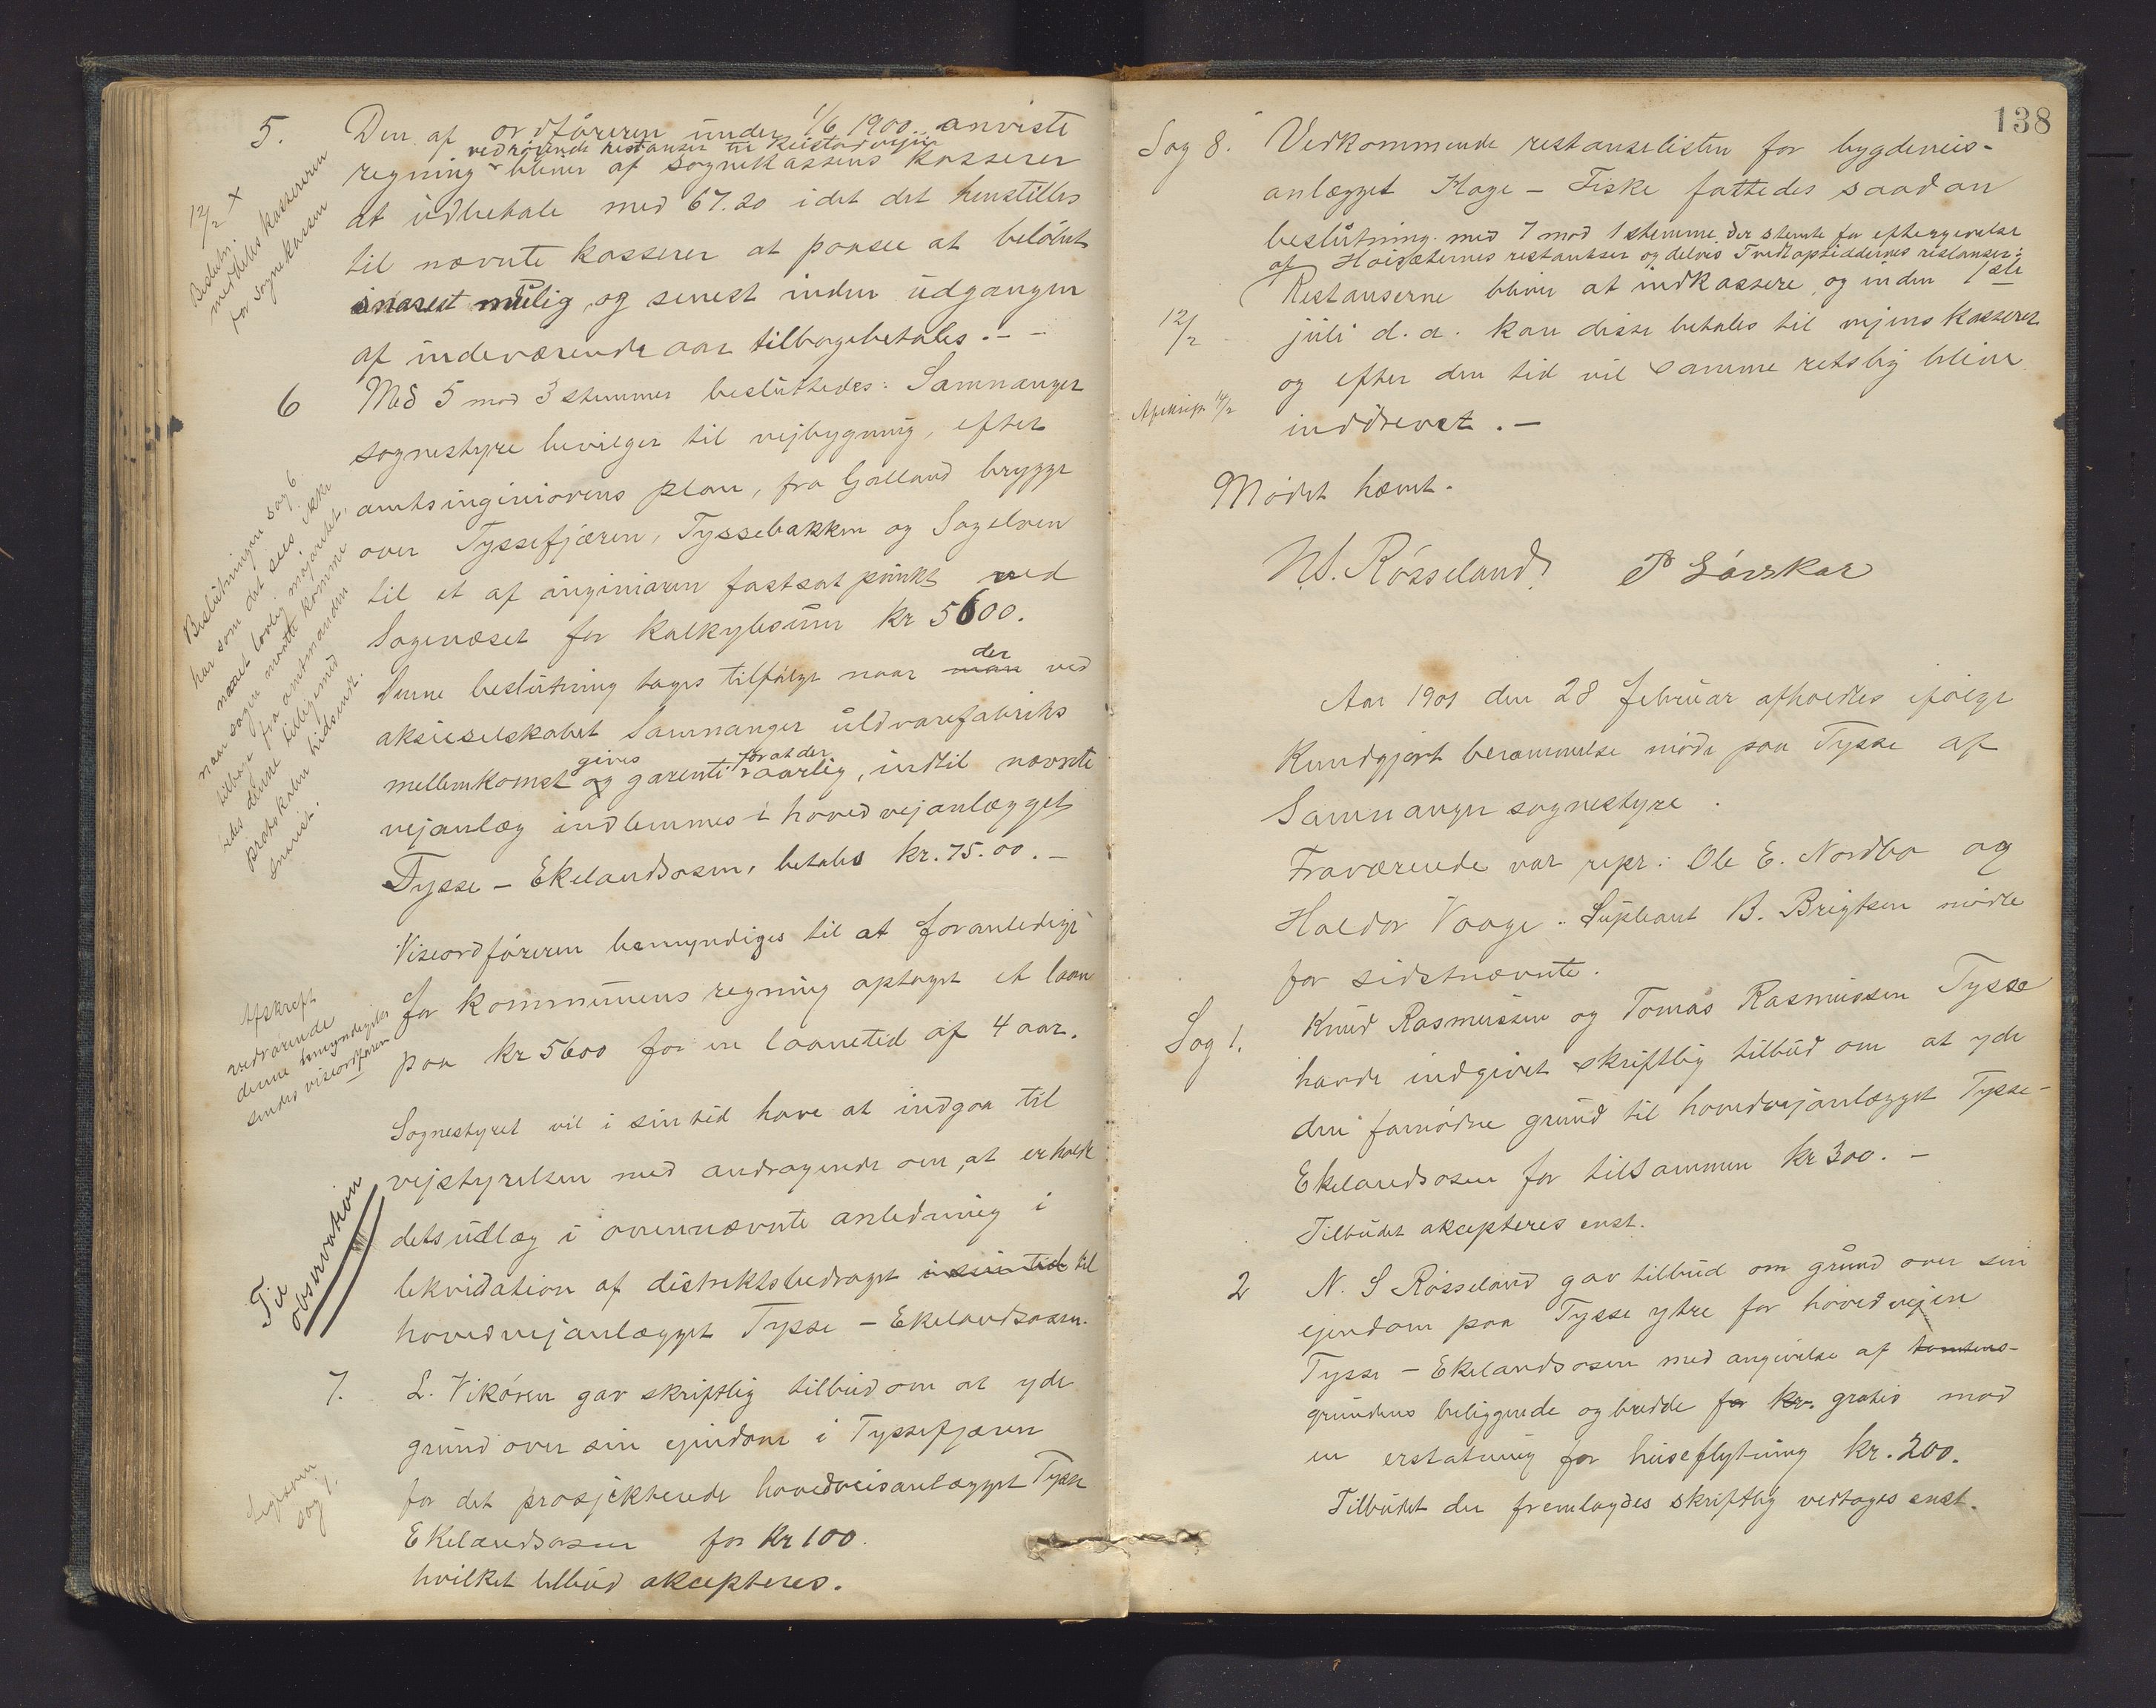 5.
Den af ordføreren under 1/6 1900 anviste
vedrørende restanser til Reistadvejen
regning bliver af sognekassens kasserer
at udbetale med 67.20 idet det henstilles
til nævnte kasserer at paasee at beløbet
snarest mulig og senest inden udgangen
af indeværende aar tilbagebetales. –
12/2 X
Beslutn.
meddeles kassereren
for sognekassen
6
Med 5 mod 3 stemmer besluttedes: Samnanger
sognestyre bevilger til vejbygning, efter
amtsinginiørens plan, fra Galland brygge
over Tyssefjæren, Tyssebakken og Sagelven
til et af inginiøren fastsat punkt ved
Sagenæset for kalkylesum kr 5600.
Denne beslutning tages tilfølge naar man der ved
aksieselskabet Samnanger uldvarefabriks
mellemkomst og gives garenti for at der aarlig, indtil nævnte
vejanlæg indlemmes i hovedvejanlægget
Tysse – Ekelandsosen, betales kr. 75.00. –
Beslutningen sag 6
har som det sees ikke
naaet lovlig majoritet,
naar sagen maatte komme
tilbage fra amtmanden
sides denne tilligemed
protokollen hidsendt.
Viseordføreren bemyndiges til at foranledige
for kommunens regning optaget et laan
paa kr 5600 for en laanetid af 4 aar.
Afskreft
vedrørende
denne bemyndigelse
sendes viseordføren
Sognestyret vil i sin tid have at indgaa til
vejstyrelsen med andragende om, at erholde
dets udlæg i ovennævnte anledning i
lekvidation af distriktsbedraget i sin tid til
hovedvejanlægget Tysse – Ekelandsosen.
Til
observation
7.
L. Vikøren gav skriftlig tilbud om at yde
grund over sin ejendom i Tyssefjæren
for det prosjekterede hovedveisanlægget Tysse
Ekelandsosen for kr 100.
hvilket tilbud akcepteres.
sag 1.
138
Sag 8.
Vedkommende restanselisten for bygdeveis-
anlægget Hage – Fiske fattedes saadan
beslutning med 7 mod 1 stemme der stemte for eftergivelse
af Høisæternes restanser og delvis Tveitopsiddernes restanser:
Restanserne bliver at indkassere, og inden 1ste
juli d.a. kan disse betales til vejens kasserer
og efter den tid vil samme retslig blive
inddrevet. –
12/2
Afskrift 14/2
Mødet hævet.
N.S. Røsseland P Lørskar
Aar 1901 den 28 februar afholdtes ifølge
Kundgjort berammelse møde paa Tysse af
Samnanger sognestyre.
Fraværende var repr: Ole E. Nordbø og
Haldor Vaage. Supleant B. Brigtsen mødte
for sidstnævnte.
Sag 1.
Knud Rasmussen og Tomas Rasmussen Tysse
havde indgivet skriftlig tilbud om at yde
den fornødne grund til hovedvejanlægget Tysse –
Ekelandsosen for tilsammen kr 300. –
Tilbudet akcepteres enst.
2
N. S Røsseland gav tilbud om grund over sin
ejendom paa Tysse ytre for hovedvejen
Tysse – Ekelandsosen med angivelse af tomtens-
grundens beliggende og bredde for kr. gratis mod
en erstatning for huseflytning kr. 200.
Tilbudet der fremlagdes skriftlig vedtages enst.